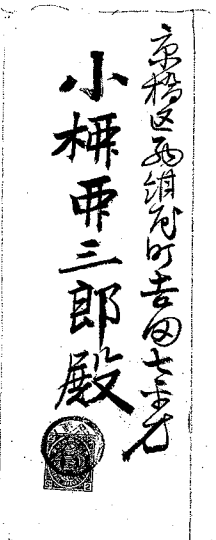 京橋区西紺屋町吉田七平方
小 三郎殿